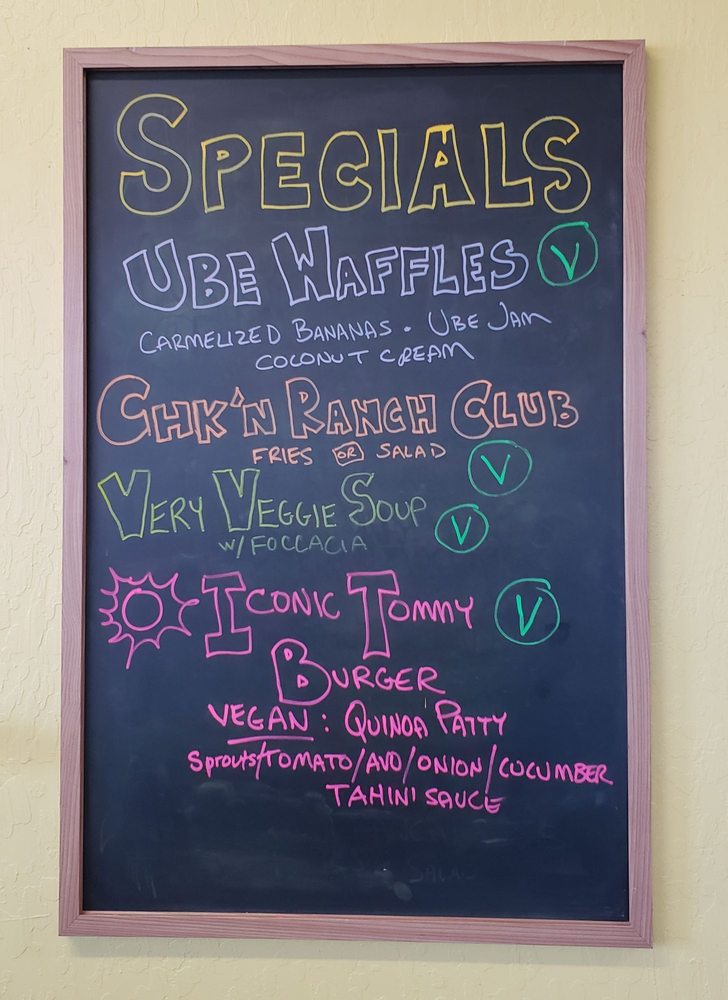 SPECIALS
UBE WAFFLES V
CARMELIZED BANANAS • UBE JAM
COCONUT CREAM
CHK'N RANCH CLUB
FRIES OR SALAD V
VERY VEGGIE SOUP V
W/ FOCCACIA
ICONIC TOMMY V
BURGER
VEGAN: QUINOA PATTY
Sprouts/TOMATO/AVO/ONION/CUCUMBER
TAHINI SAUCE